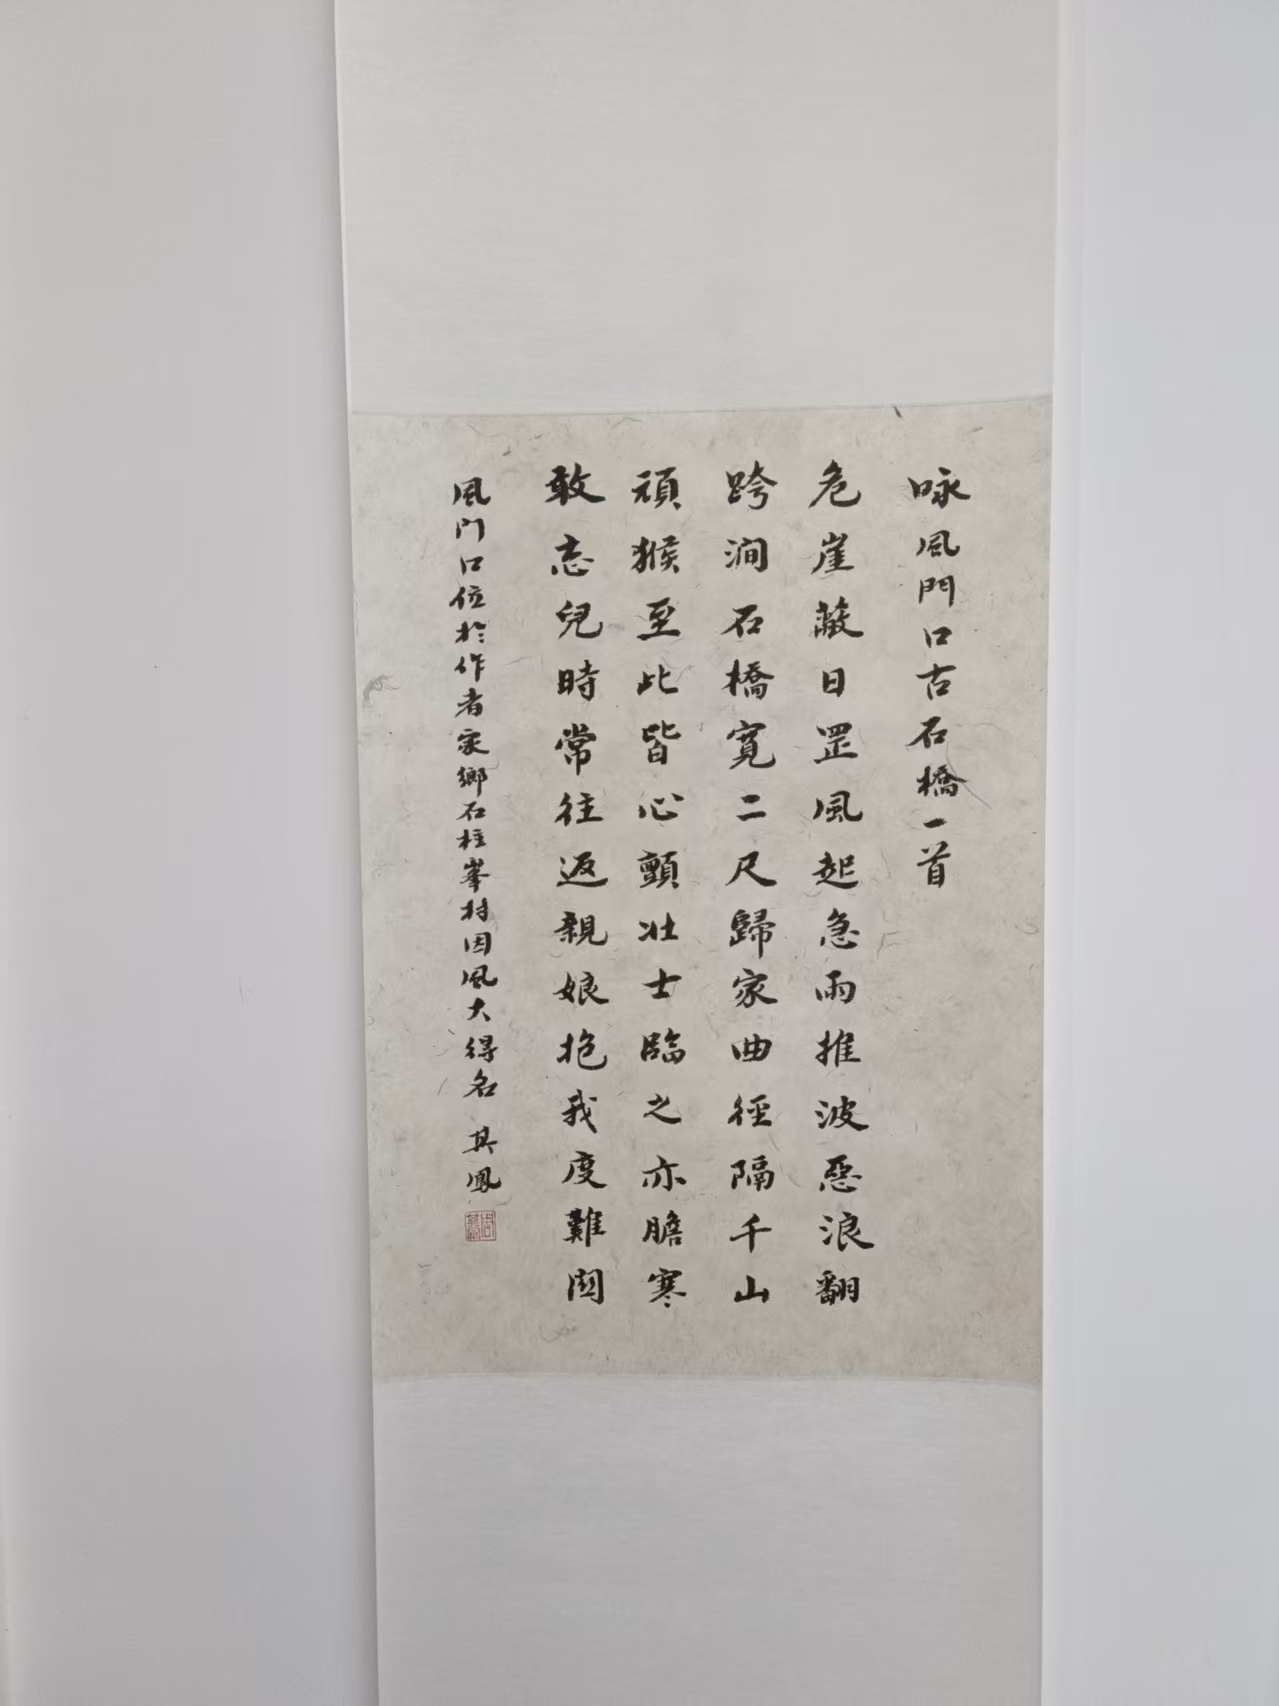 咏風門口古石橋一首
危崖蔽日罡風起急雨推波惡浪翻
跨澗石橋寬二尺歸家曲徑隔千山
頑猴至此皆心顫壯士臨之亦膽寒
敢忘兒時常往返親娘抱我度難関
風门口位於作者家鄉石柱峯村因風大得名 其鳳